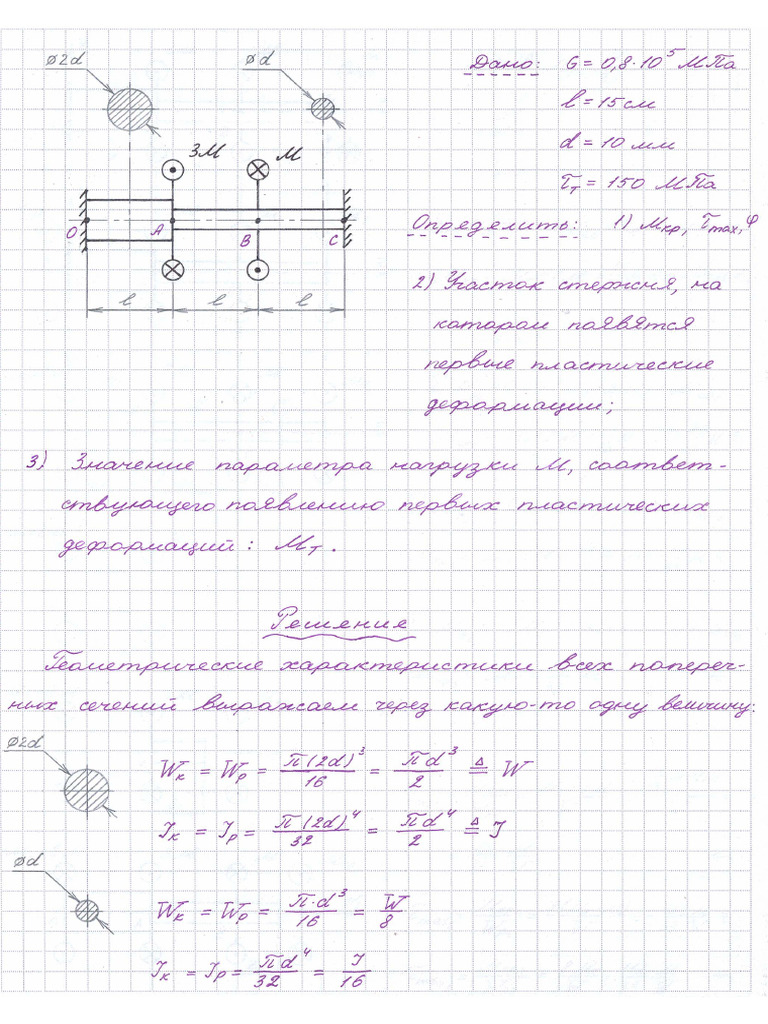 ⌀2d
⌀d
Дано: G = 0,8·10⁵ МПа
l = 15 см
d = 10 мм
τт = 150 МПа
3M
M
O
A
B
C
l
l
l
Определить: 1) Мкр, τmax, φ
2) Участок стержня, на
котором появятся
первые пластические
деформации;
3) Значение параметра нагрузки М, соответ-
ствующего появлению первых пластических
деформаций: Мт.
Решение
Геометрические характеристики всех попереч-
ных сечений выражаем через какую-то одну величину:
⌀2d
Wк = Wp = π(2d)³/16 = πd³/2 ≜ W
Jк = Jp = π(2d)⁴/32 = πd⁴/2 ≜ J
⌀d
Wк = Wp = π·d³/16 = W/8
Jк = Jp = πd⁴/32 = J/16